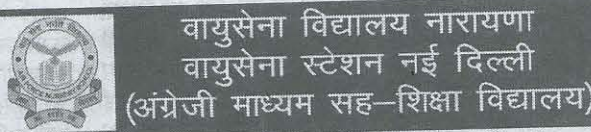 वायुसेना विद्यालय नारायणा
वायुसेना स्टेशन नई दिल्ली
(अंग्रेजी माध्यम सह–शिक्षा विद्यालय)